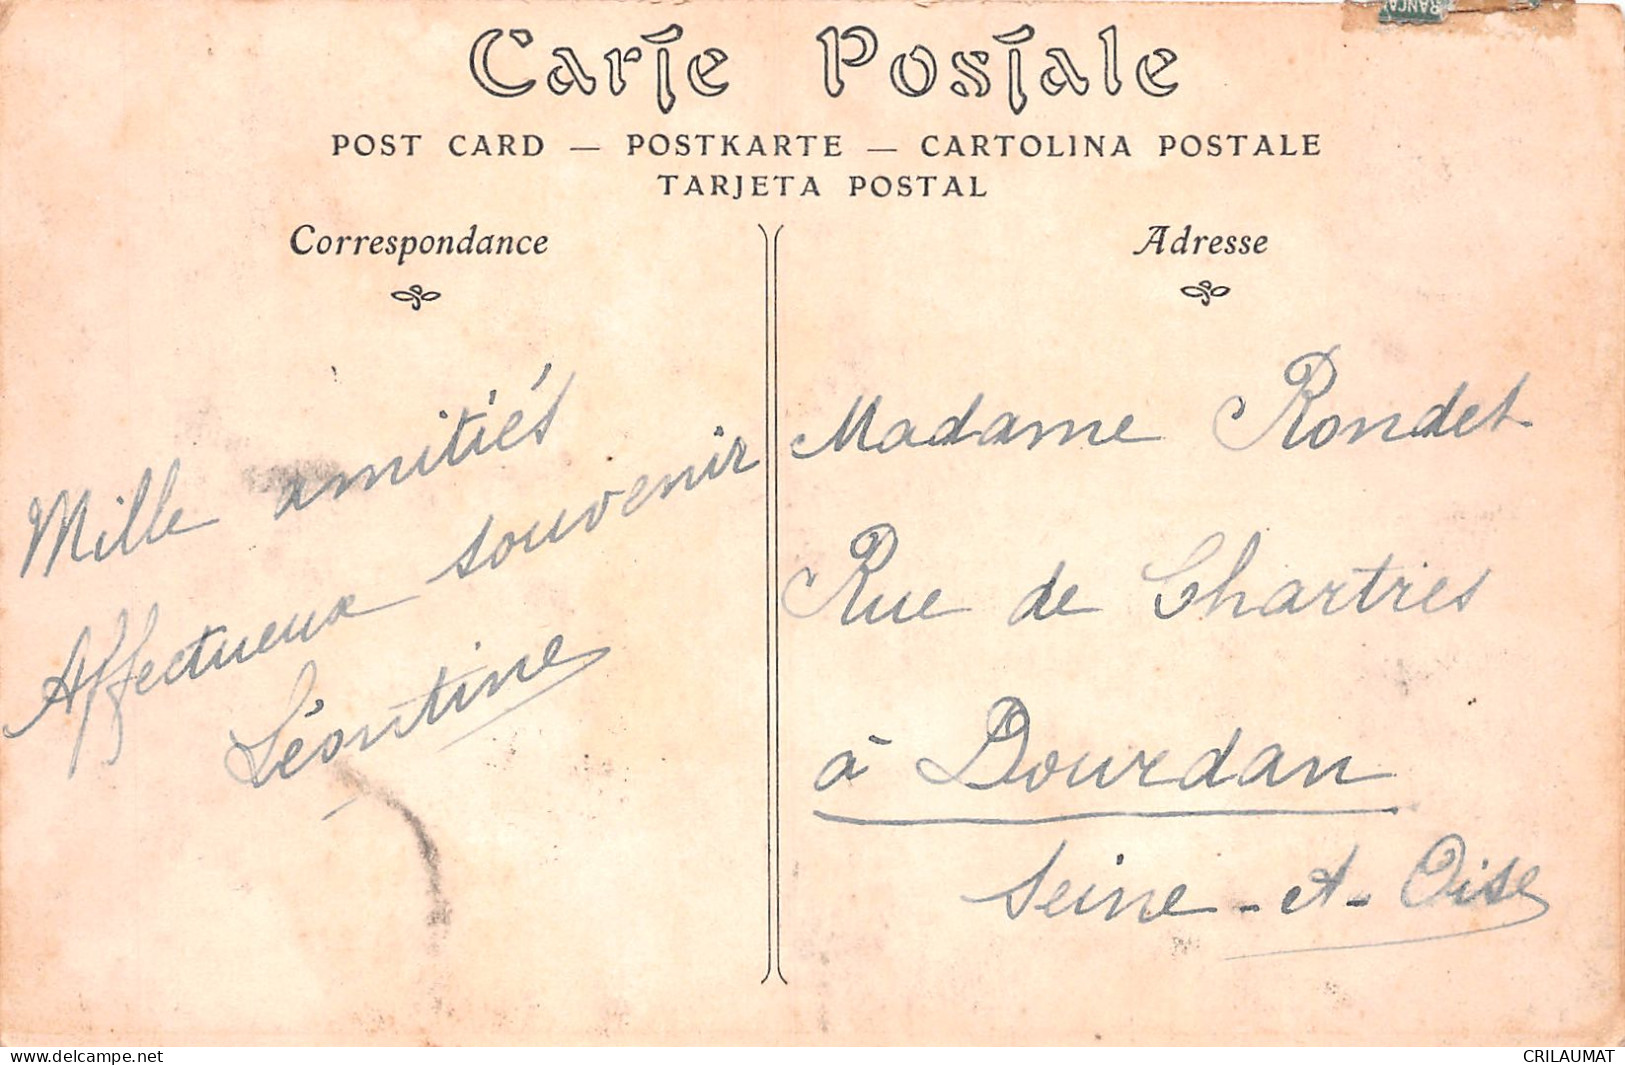 Carte Postale
POST CARD — POSTKARTE — CARTOLINA POSTALE
TARJETA POSTAL
Correspondance
Mille amitiés
Affectueux souvenir
Léontine
Adresse
Madame Rondet
Rue de Chartres
à Dourdan
Seine-et-Oise
www.delcampe.net
CRILAUMAT